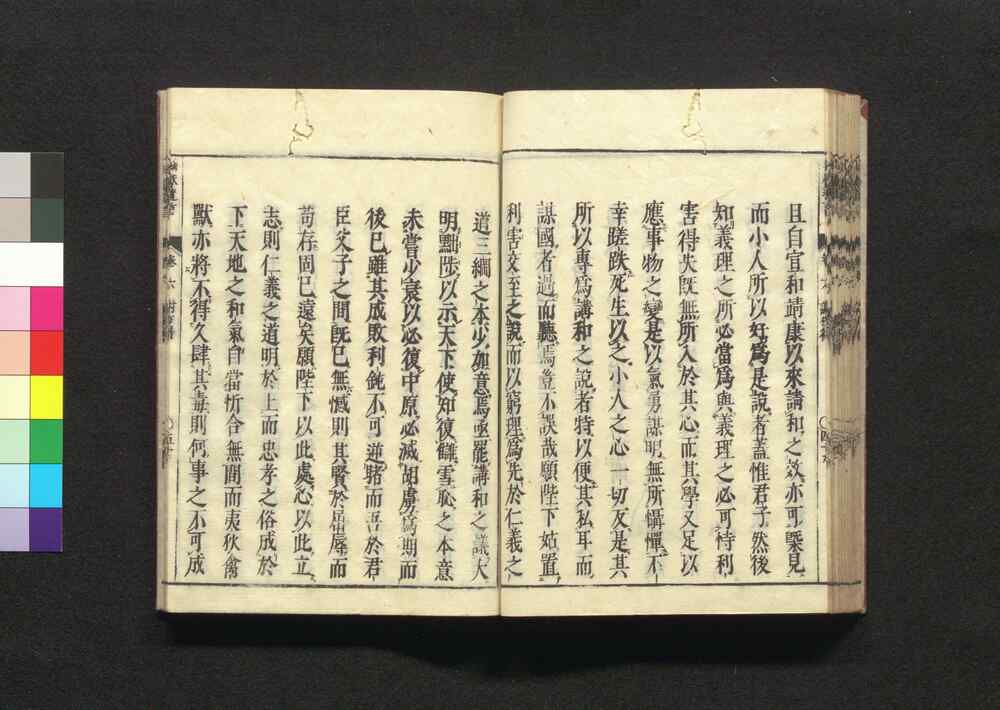 且自宣和靖康以來講和之效亦可槩見
而小人所以好爲是說者蓋惟君子然後
知義理之所必當爲與義理之必可恃利
害得失既無所入於其心而其學又足以
應事物之變是以氣勇謀明無所懾憚不
幸蹉跌死生以之小人之心一切反是其
所以專爲講和之說者特以便其私耳而
謀國者過而聽焉豈不誤哉願陛下姑置
利害交至之說而以窮理爲先於仁義之
道三綱之本少加意焉亟罷講和之議大
明黜陟以示天下使知復讎雪恥之本意
未嘗少衰以必復中原必滅胡虜爲期而
後已雖其成敗利鈍不可逆睹而吾於君
臣父子之間既已無憾則其賢於屈辱而
苟存固已遠矣願陛下以此處心以此立
志則仁義之道明於上而忠孝之俗成於
下天地之和氣自當忻合無間而夷狄禽
獸亦將不得久肆其毒則何事之不可成